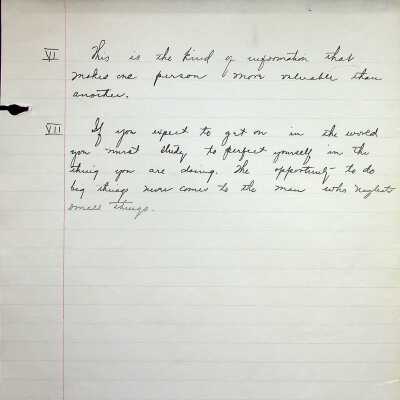 VI This is the kind of information that
makes one person more valuable than
another.
VII If you expect to get on in the world
you must study to perfect yourself in the
thing you are doing. The opportunity to do
big things never comes to the man who neglects
small things.